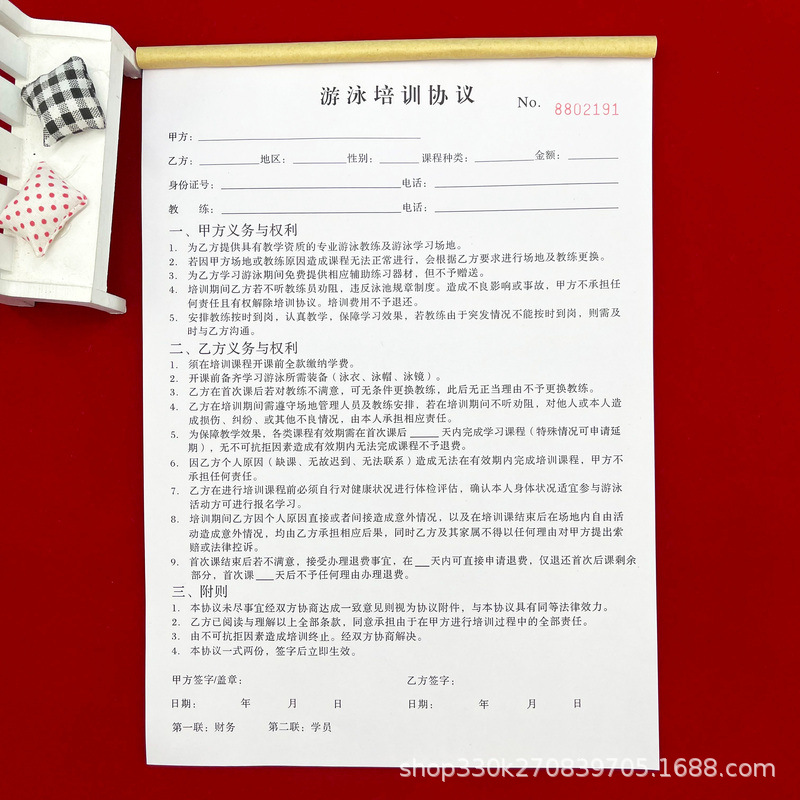 游泳培训协议
No. 8802191
甲方：
乙方： 地区： 性别： 课程种类： 金额：
身份证号： 电话：
教 练： 电话：
一、甲方义务与权利
1. 为乙方提供具有教学资质的专业游泳教练及游泳学习场地。
2. 若因甲方场地或教练原因造成课程无法正常进行，会根据乙方要求进行场地及教练更换。
3. 为乙方学习游泳期间免费提供相应辅助练习器材，但不予赠送。
4. 培训期间乙方若不听教练员劝阻，违反泳池规章制度。造成不良影响或事故，甲方不承担任
何责任且有权解除培训协议。培训费用不予退还。
5. 安排教练按时到岗，认真教学，保障学习效果，若教练由于突发情况不能按时到岗，则需及
时与乙方沟通。
二、乙方义务与权利
1. 须在培训课程开课前全款缴纳学费。
2. 开课前备齐学习游泳所需装备（泳衣、泳帽、泳镜）。
3. 乙方在首次课后若对教练不满意，可无条件更换教练，此后无正当理由不予更换教练。
4. 乙方在培训期间需遵守场地管理人员及教练安排，若在培训期间不听劝阻，对他人或本人造
成损伤、纠纷、或其他不良情况，由本人承担相应责任。
5. 为保障教学效果，各类课程有效期需在首次课后____天内完成学习课程（特殊情况可申请延
期），无不可抗拒因素造成有效期内无法完成课程不予退费。
6. 因乙方个人原因（缺课、无故迟到、无法联系）造成无法在有效期内完成培训课程，甲方不
承担任何责任。
7. 乙方在进行培训课程前必须自行对健康状况进行体检评估，确认本人身体状况适宜参与游泳
活动方可进行报名学习。
8. 培训期间乙方因个人原因直接或者间接造成意外情况，以及在培训课结束后在场地内自由活
动造成意外情况，均由乙方承担相应后果，同时乙方及其家属不得以任何理由对甲方提出索
赔或法律控诉。
9. 首次课结束后若不满意，接受办理退费事宜，在__天内可直接申请退费，仅退还首次后课剩余
部分，首次课__天后不予任何理由办理退费。
三、附则
1. 本协议未尽事宜经双方协商达成一致意见则视为协议附件，与本协议具有同等法律效力。
2. 乙方已阅读与理解以上全部条款，同意承担由于在甲方进行培训过程中的全部责任。
3. 由不可抗拒因素造成培训终止。经双方协商解决。
4. 本协议一式两份，签字后立即生效。
甲方签字/盖章： 乙方签字：
日期： 年 月 日 日期： 年 月 日
第一联：财务 第二联：学员
shop330k270839705.1688.com